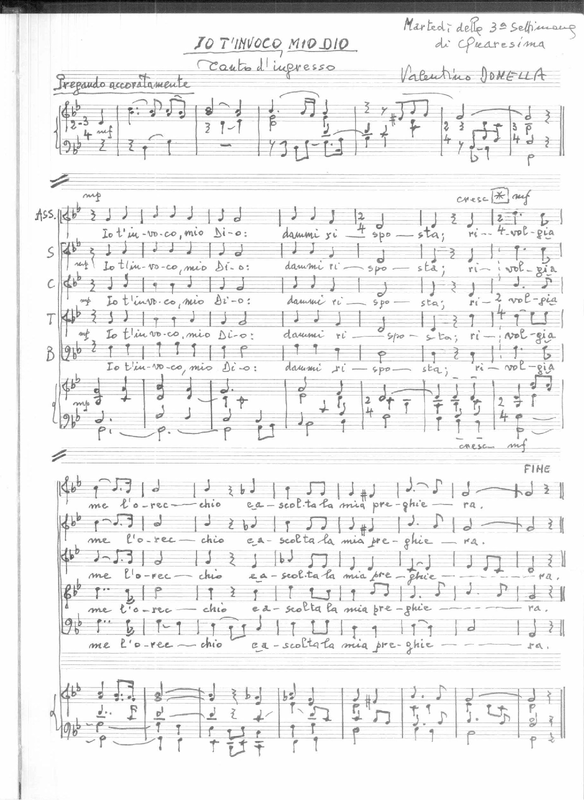 Martedì della 3ª Settimana
di Quaresima
IO T'INVOCO, MIO DIO
Canto d'ingresso
Valentino DONELLA
Pregando accoratamente
mf
mp
cresc * mf
ASS.
Io t'in-vo-co, mio Di-o: dammi ri — spo — sta; ri — vol-gia
S
mp
Io t'in-vo-co, mio Di-o: dammi ri — spo — sta; ri — vol-gia
C
mp
Io t'in-vo-co, mio Di-o: dammi ri — spo — sta; ri — vol-gia
T
mp
Io t'in-vo-co, mio Di-o: dammi ri — spo — sta; ri — vol-gia
B
Io t'in-vo-co, mio Di-o: dammi ri — spo — sta; ri — vol-gia
mp
cresc mf
FINE
me l'o-rec — chio ea-scol-ta la mia pre-ghie — ra.
me l'o-rec — chio ea-scol-ta la mia pre-ghie — ra.
me l'o-rec — chio ea-scol-ta la mia pre-ghie — ra.
me l'o-rec — chio ea-scol-ta la mia pre-ghie — ra.
me l'o-rec — chio ea-scol-ta la mia pre-ghie — ra.